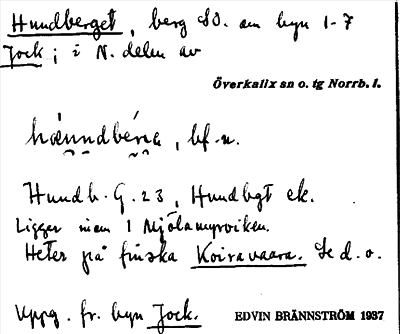 Hundberget, berg SO. om byn 1-7
Jock; i N. delen av
Överkalix sn o. tg Norrb. l.
hånndbérje, bf. n.
Hundb. G. 23, Hundbgt ek.
Ligger inom 1 Mjölamyrviken.
Heter på finska Koiravaara. Se d. o.
Uppg. fr. byn Jock.
EDVIN BRÄNNSTRÖM 1937